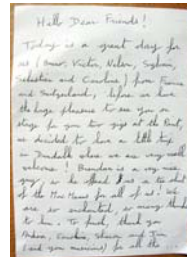 Hello Dear Friends!
Today is a great day for
us ( , Victor, Nolan, Sylvain,
Sebastien and Caroline) from France
and Switzerland, before we have
the huge pleasure to see you on
stage for your two gigs at the Point,
we decided to have a little trip
in Dundalk where we are very well
welcome! Brendan is a very nice
guy, as he offered us a
of the for all of us! We
are so enchanted, so many thanks
to him. To finish, thank you
Andrea, Caroline, and Jim
(and your musicians) for all the ...